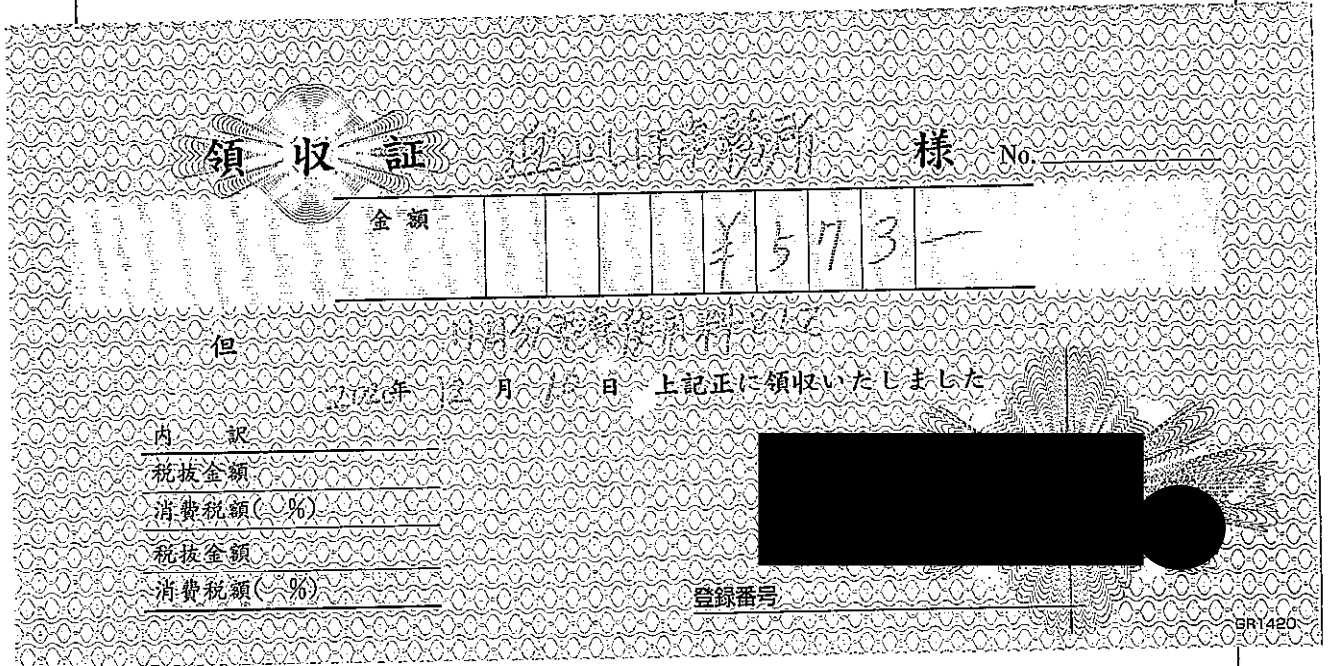 領収証 事務所 様 No.
金額 ¥573―
但 11月分 料として
年 12月 10日 上記正に領収いたしました
内訳
税抜金額
消費税額( %)
税抜金額
消費税額( %)
登録番号
GR1420